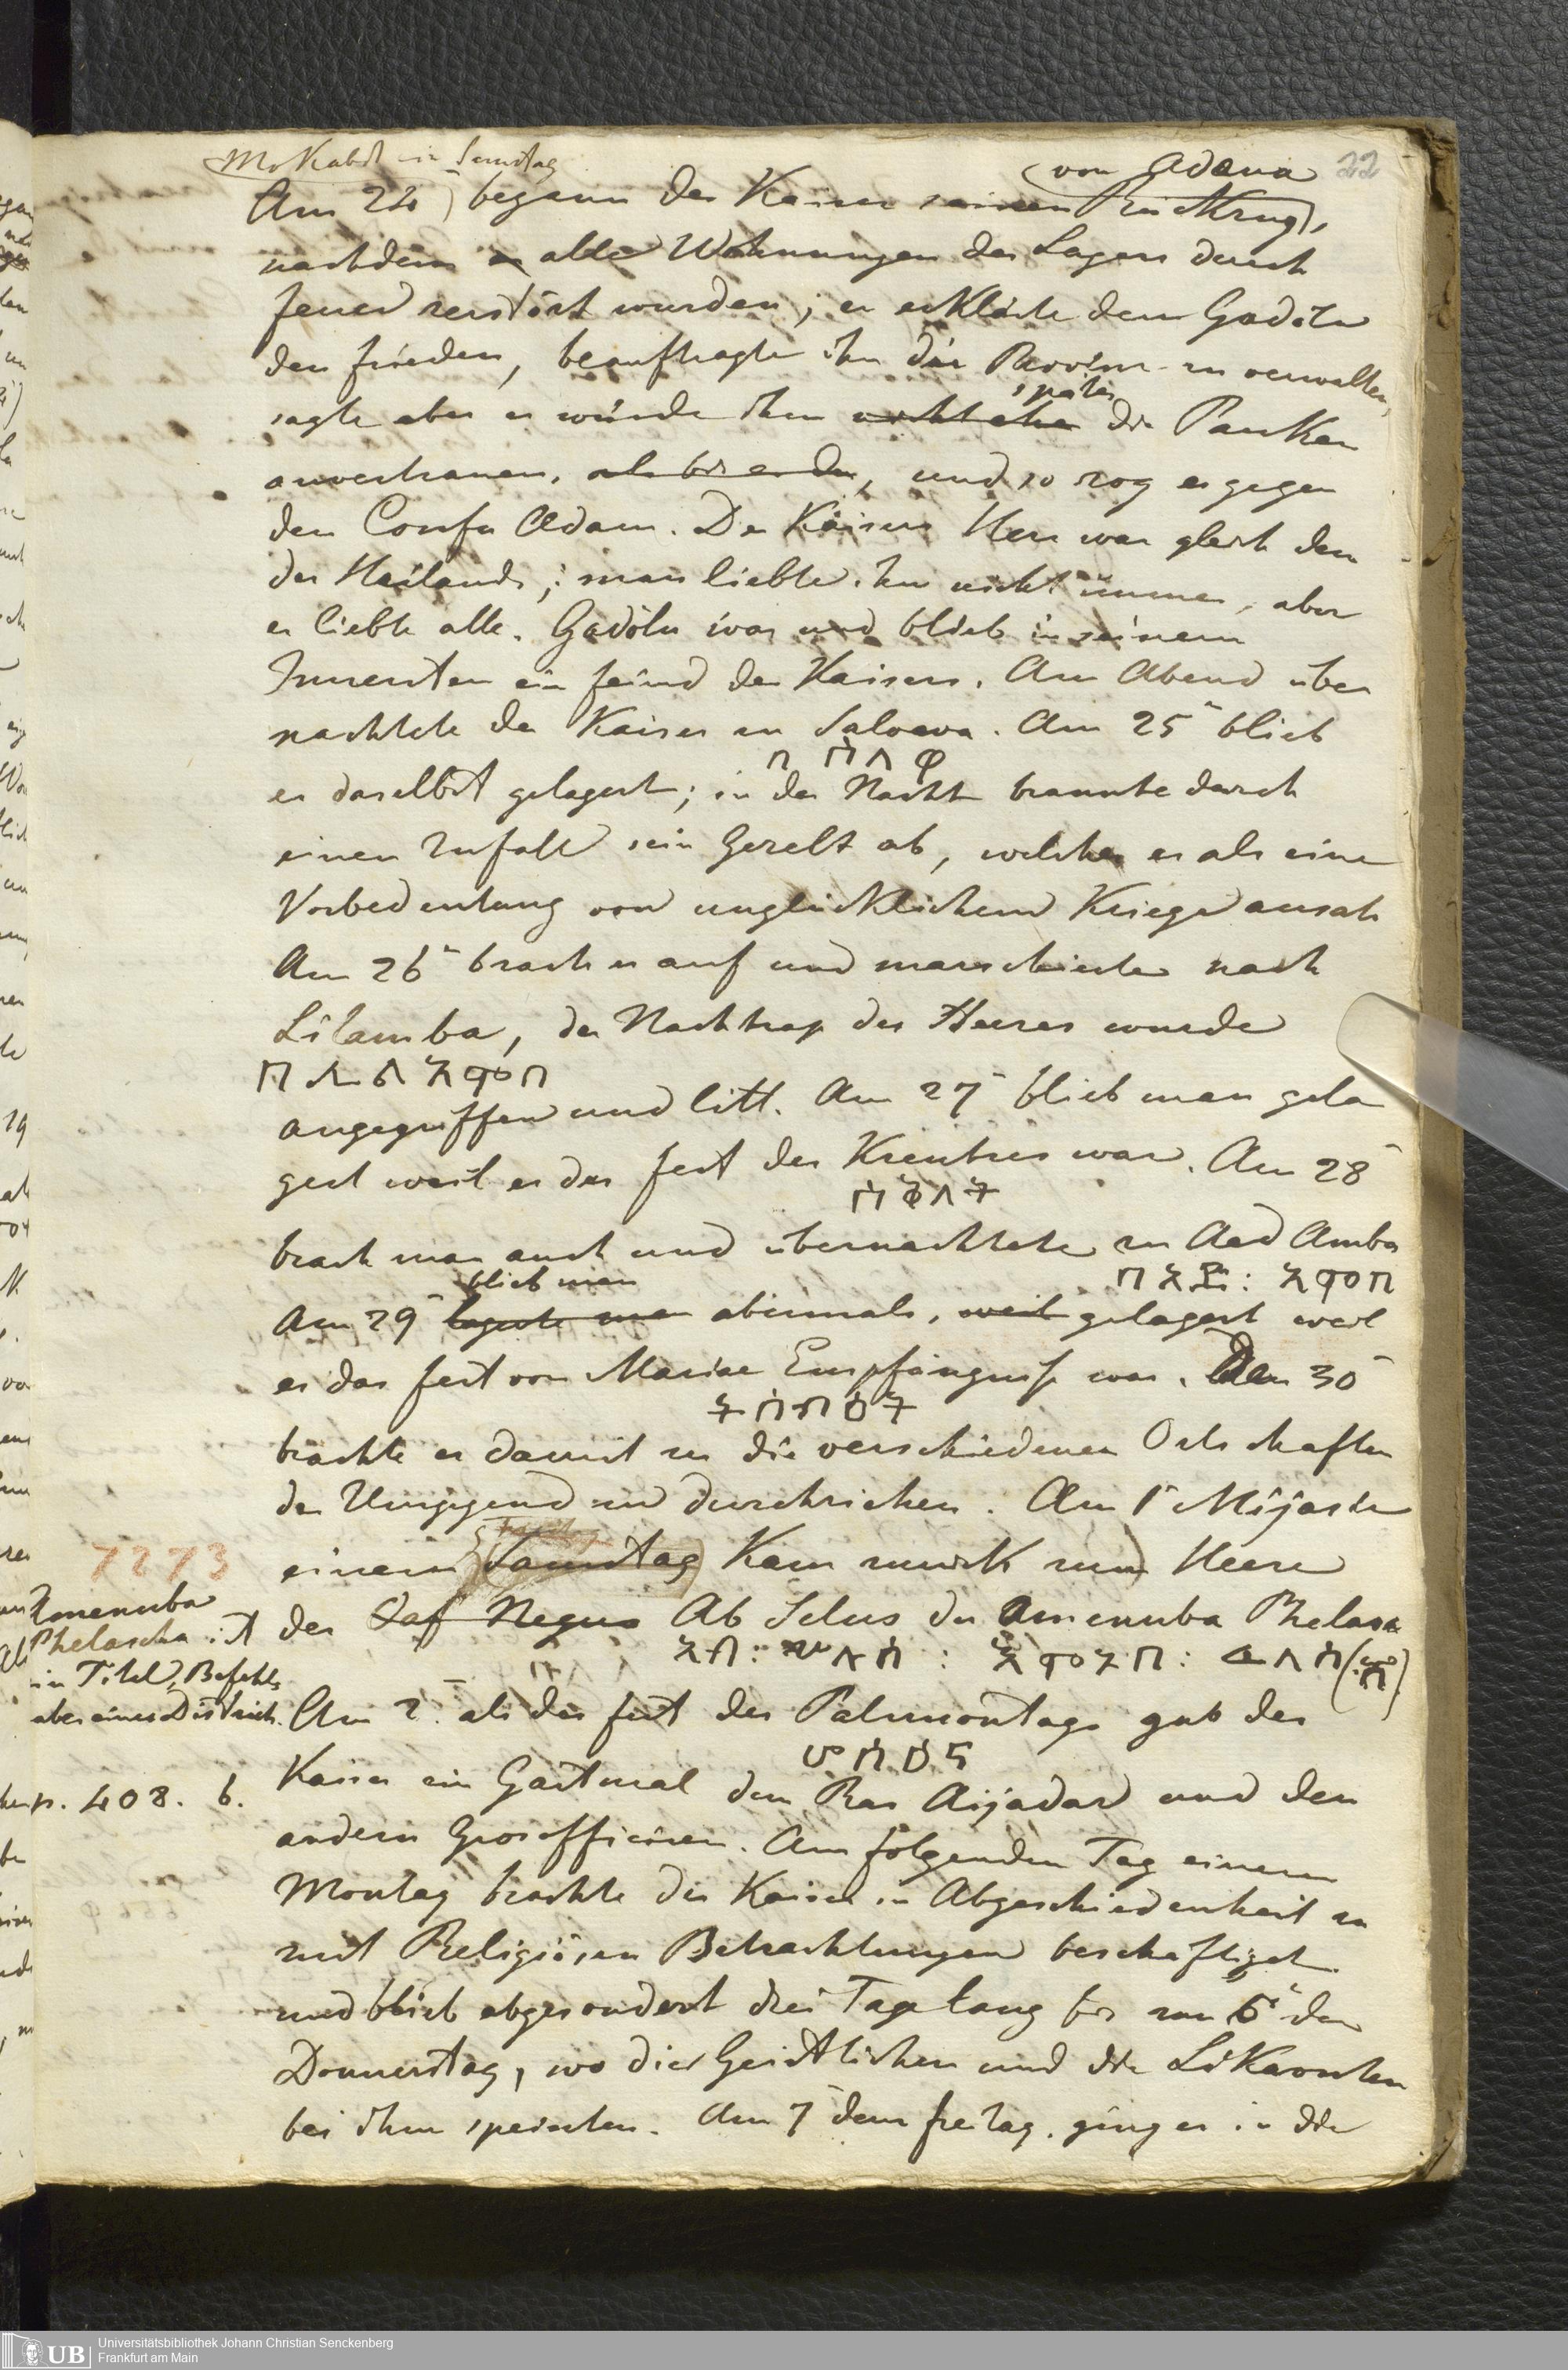 Mokabit in Samstag
von Adaua 22
Am 24 begann der Kaiser seinen Rückzug,
nachdem er alle Wohnungen des Lagers durch
Feuer zerstört wurden; er erklärte dem Gadölu
den Frieden, beauftragte ihn die Provinz zu verwalten,
später
sagte aber er würde ihm nicht eher die Pauken
anvertrauen, als bis er den, und so zog er gegen
den Confu Adam. Des Kaisers Herz war gleich dem
des Heilands; man liebte ihn nicht immer, aber
er liebte alle. Gadölu war und blieb in seinem
Innersten ein Feind des Kaisers. Am Abend über
nachtete der Kaiser zu Saloava. Am 25 blieb
በ ሰለ ዋ
er daselbst gelagert; in der Nacht brannte durch
einen Zufall sein Gezelt ab, welches er als eine
Vorbedeutung von unglücklichem Kriege ansah
Am 26 brach er auf und marschierte nach
Lilamba, der Nachtrap des Heeres wurde
በ ሊ ል አምባ
angegriffen und litt. Am 27 blieb man gela
gert weil es das Fest des Kreutzes war. Am 28
ስቅለት
brach man auch und übernachtete zu Aad Amba
በአድ: አምባ
blieb man
Am 29 lagerte man abermals, weil gelagert weil
es das Fest von Mariae Empfängniss war. Den 30
ትስብእት
brachte er damit zu die verschiedenen Ortschaften
der Umgegend zu durchziehen. Am 1 Mijasia
einem Samstag kam zurück zum Heere
7273
der Saf Negus Ab Selus der Amenuba Phelasa
Amenuba
Phelascha ist
ein Titel, Befehls
aber eines District.
Am 2. als das Fest des Palmsontags gab der
ሆሳዕና
Kaiser ein Gastmal dem Ras Aijadar und den
p. 408. b.
andern Grosofficiren. Am folgenden Tag einem
Montag brachte der Kaiser in Abgeschiedenheit zu
mit Religiösen Betrachtungen beschäftiget
und blieb abgesondert drei Tage lang bis zum 6 den
Donnerstag, wo die Geistlichen und die Likaonten
bei ihm speisten. Am 7 dem Freitag ging er in die
UB Universitätsbibliothek Johann Christian Senckenberg
Frankfurt am Main